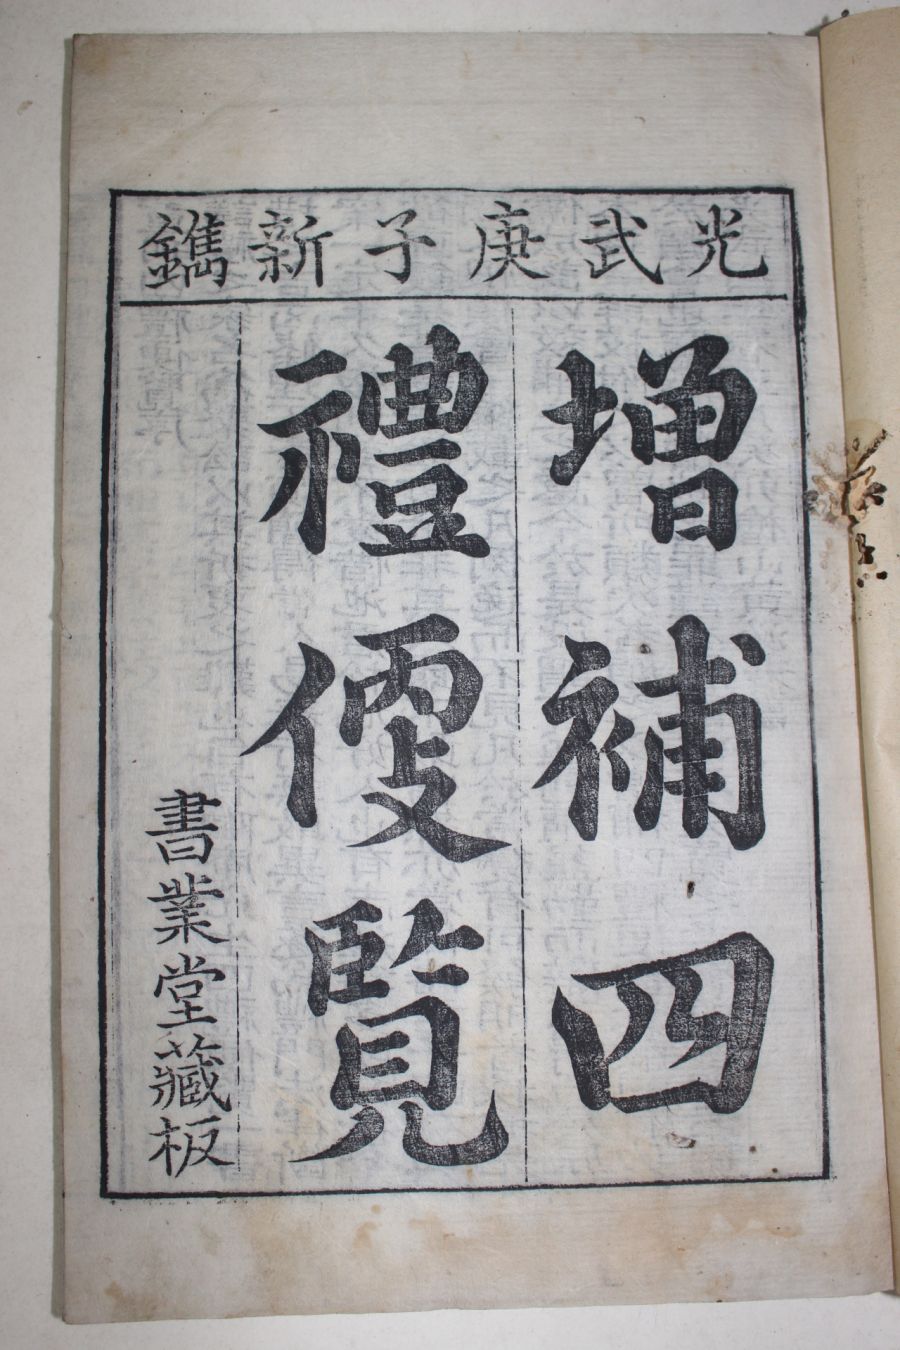 光武庚子新鐫
增補四
禮㪅覽
書業堂藏板